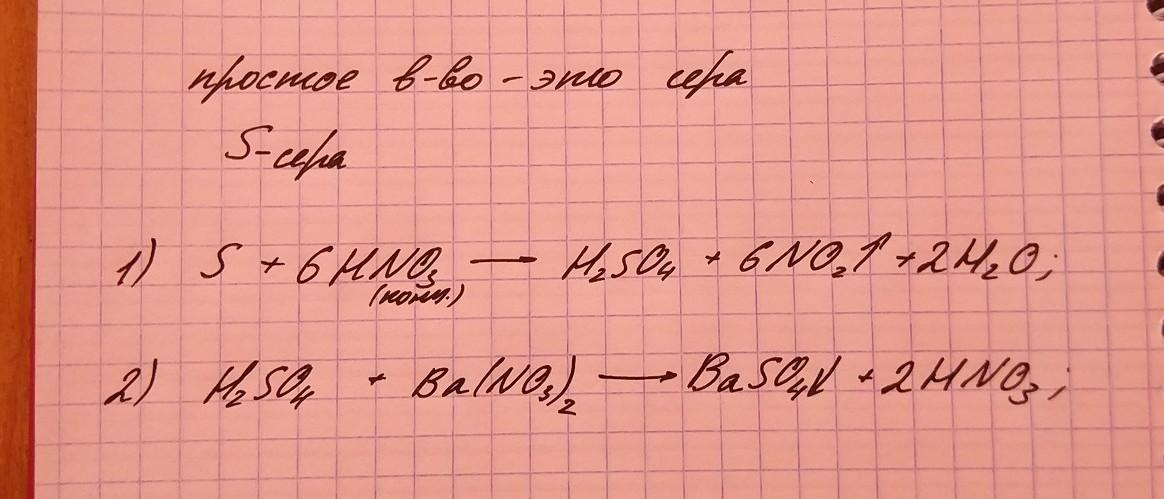 простое в-во - это сера
S-сера
1) S + 6HNO₃ → H₂SO₄ + 6NO₂↑ + 2H₂O;
(конц.)
2) H₂SO₄ + Ba(NO₃)₂ → BaSO₄↓ + 2HNO₃;